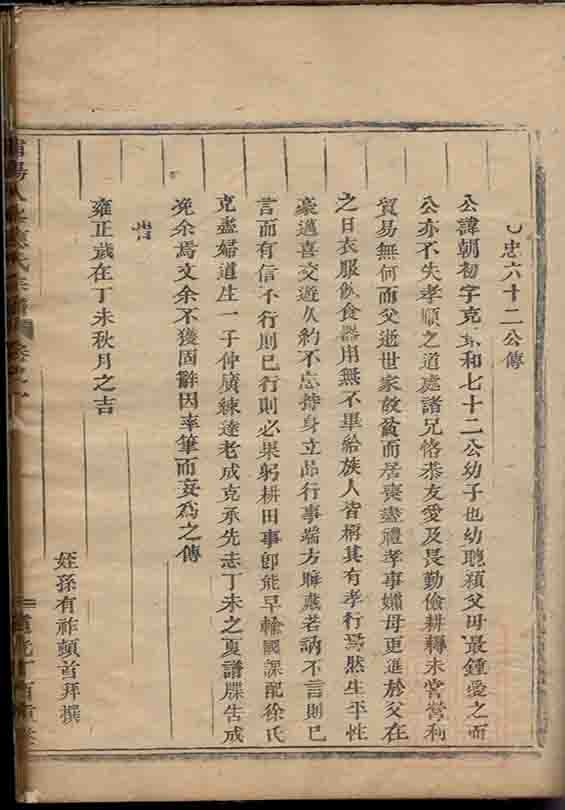 忠六十二公傳
公諱朝初字克 和七十二公幼子也幼聰穎父母最鍾愛之而
公亦不失孝順之道處諸兄恪恭友愛及長勤儉耕耨未嘗營利
貿易無何而父逝世家故貧而居喪盡禮孝事孀母更進於父在
之日衣服飲食器用無不畢給族人皆稱其有孝行焉然生平性
豪邁喜交遊久約不忘持身立品行事端方 若訥不言則已
言而有信不行則已行則必果躬耕田事即能早輸國課配徐氏
克盡婦道生一子仲廣練達老成克承先志丁未之夏譜牒告成
免余為文余不獲固辭因率筆而妄為之傳
旹
雍正歲在丁未秋月之吉
姪孫有祚頓首拜撰
氏宗譜 卷之